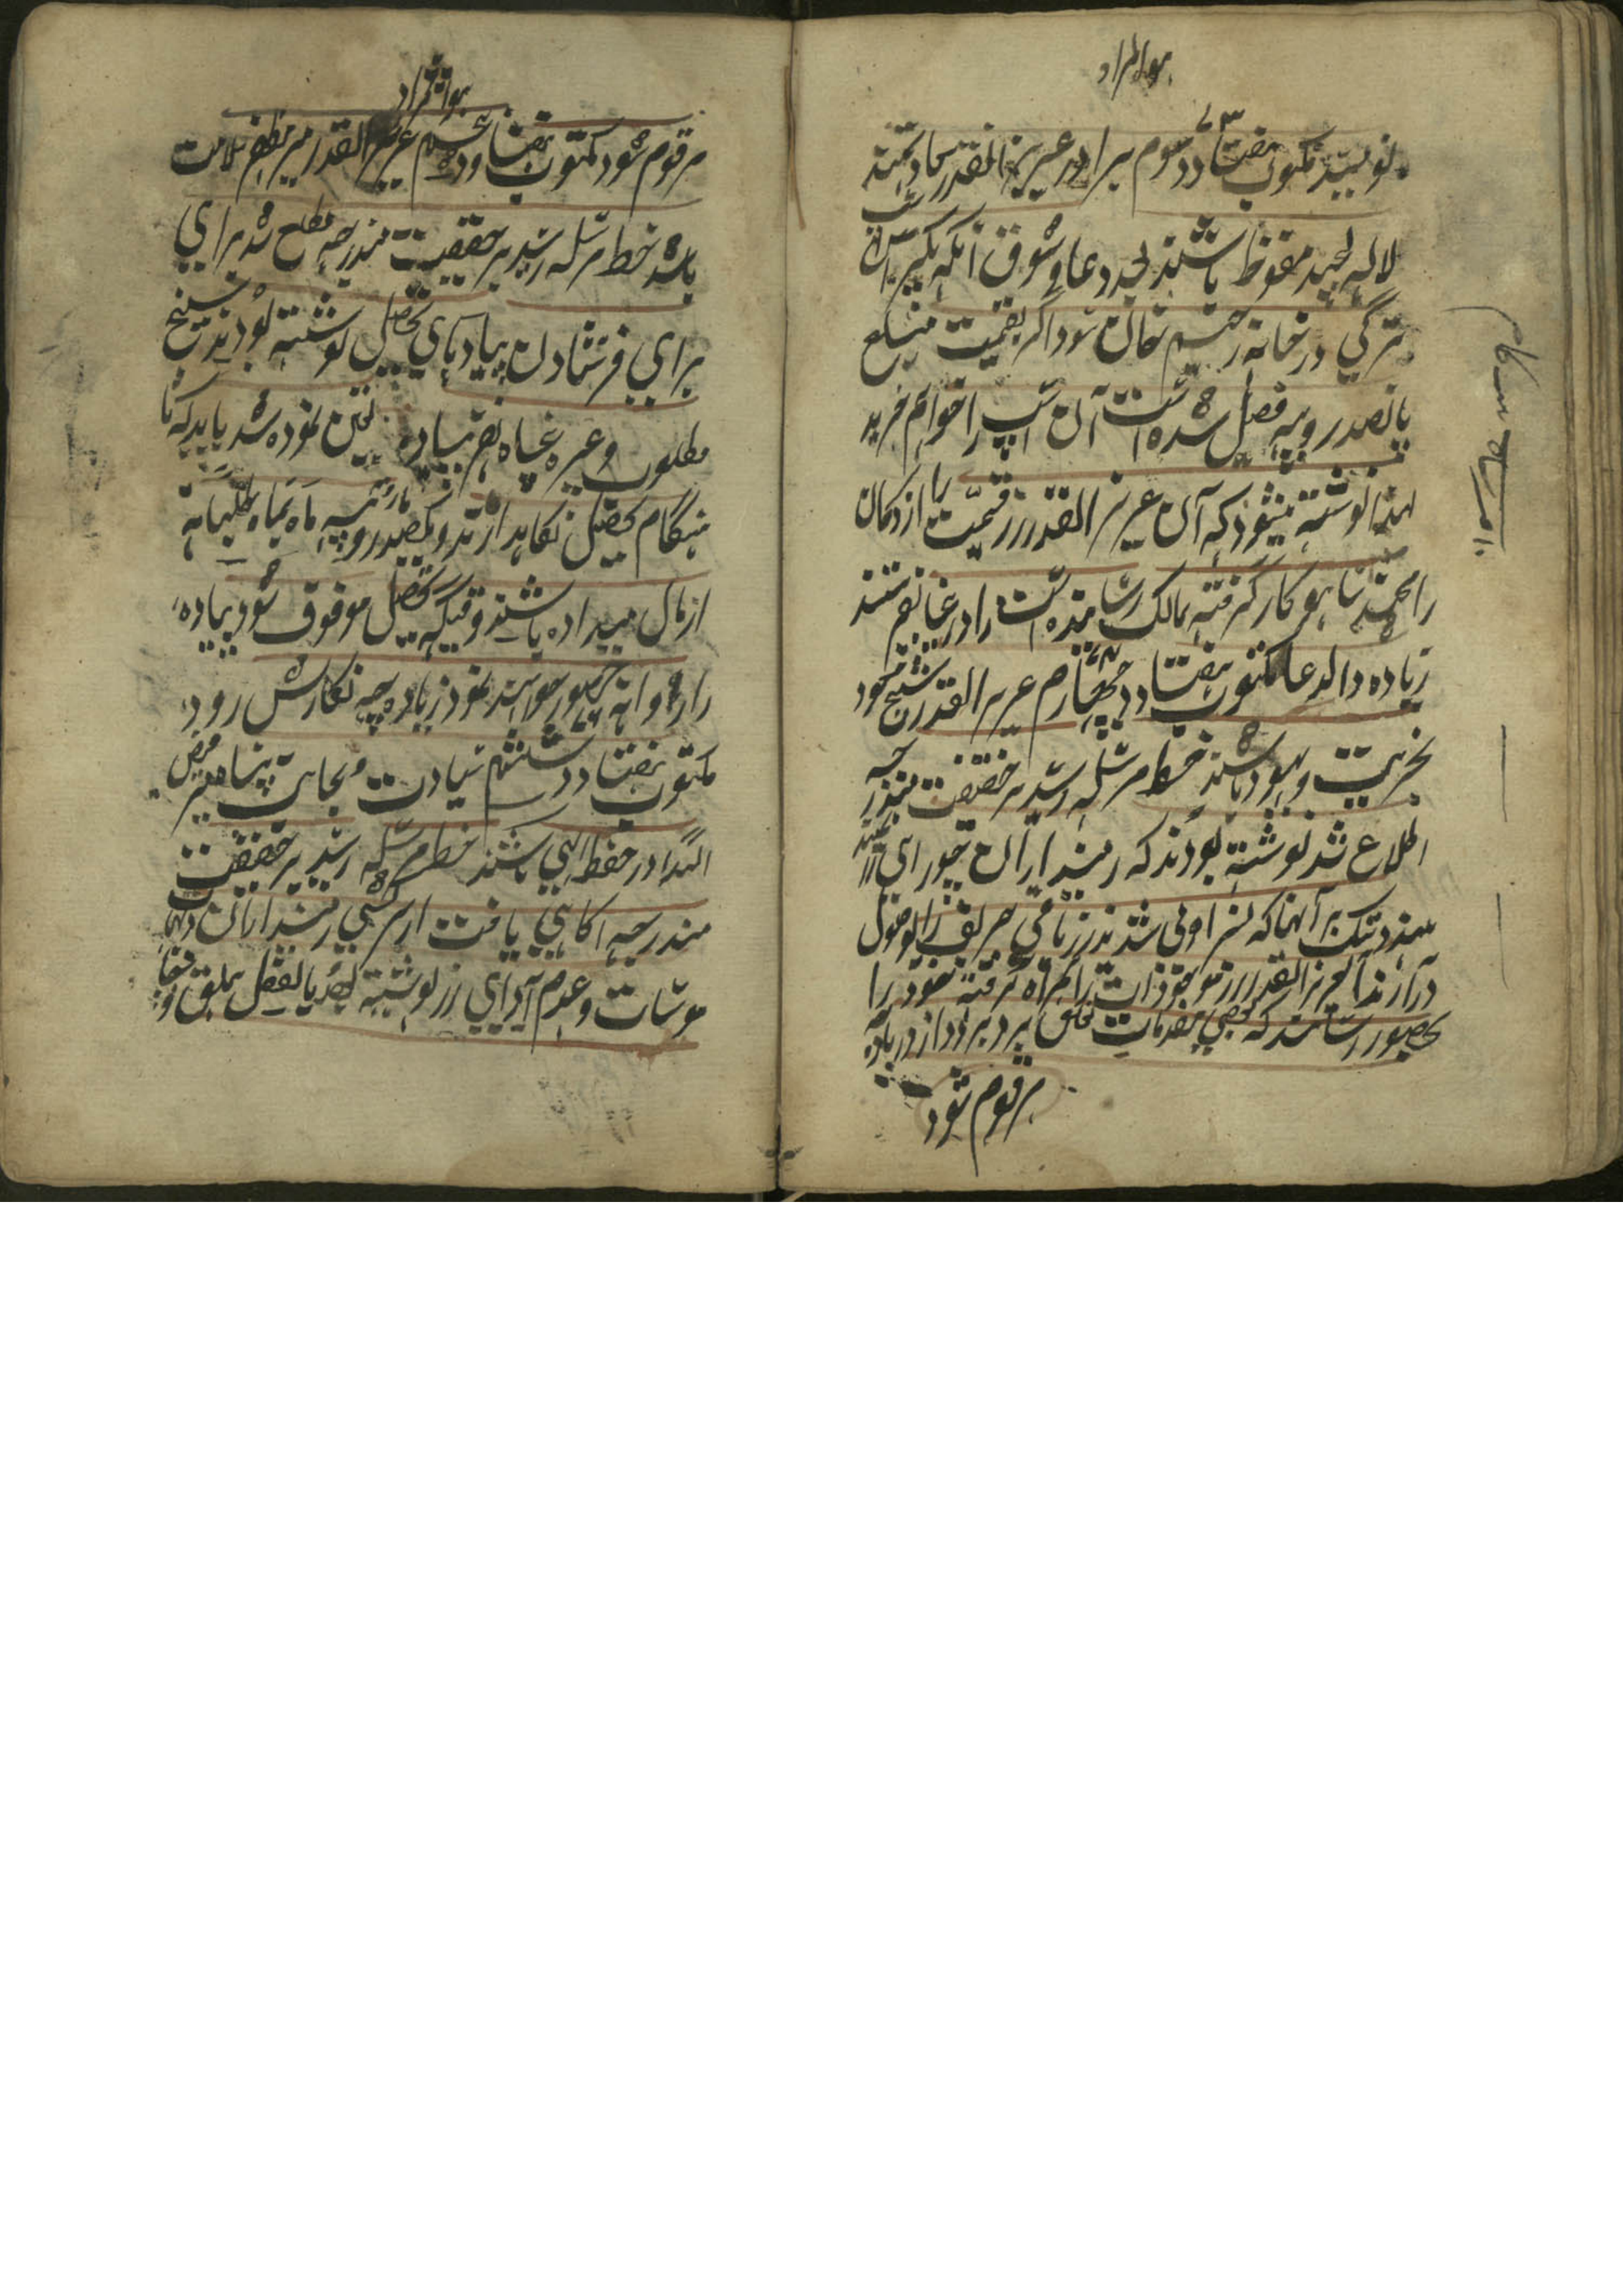 هوالمراد
نویسید مکتوب هفتاد و سوم ۷۳ برادر عزیز القدر سعادتمند
لاله لچیند محفوظ باشند بعد دعا و شوق آنکه یکرأس اسپ
ترکی در خانه رستم خان سوداگر بقیمت مبلغ
پانصد روپیه فیصل شده است آن اسپ را خواهم خرید
لهذا نوشته میشود که آن عزیز القدر زر قیمت را از دکان
رامچند ساهوکار گرفته بمالک رسانیده اسپ را در اینجا بفرستند
زیاده والدعا مکتوب هفتاد و چهارم ۷۴ عزیز القدر شیخ
بخیریت و بهبود باشند خط مرسله رسید بر حقیقت مندرجه
اطلاع شد نوشته بودند که زمینداران
سند و تنگ بر آنها که سزاولی شد زر باقی خریف را بوصول
در آرند آنعزیز القدر زر موجودات را همراه گرفته خود را
بحضور رسانند که بعضی مقدمات تعلق برو برو دارد زیاده چه
مرقوم شود
هوالمراد
مرقوم شود مکتوب هفتاد و پنجم عزیز القدر میر مظفر سلامت
باشند خط مرسله رسید بر حقیقت مندرجه مطلع شد برای
برای فرستادن پیادهای تحصیل نوشته بودند شیخ
مطلوب وغیره پنجاه نفر پیاده تعین نموده شد باید که تا
هنگام تحصیل نگاهدارند و یکصد روپیه ماه بماه طلبانه
از مال میداده باشند وقتیکه تحصیل موقوف شود پیاده
را روانه حضور خواهند نمود زیاده چه نگارش رود
مکتوب هفتاد و ششم ۷۶ سیادت و نجابت پناه میر فیض
الله در حفظ الهی باشند خط مرسله رسید بر حقیقت
مندرجه آگاهی یافت از سرکشی زمینداران دیهات
موسات و عدم ادای زر نوشته بودند بالفعل